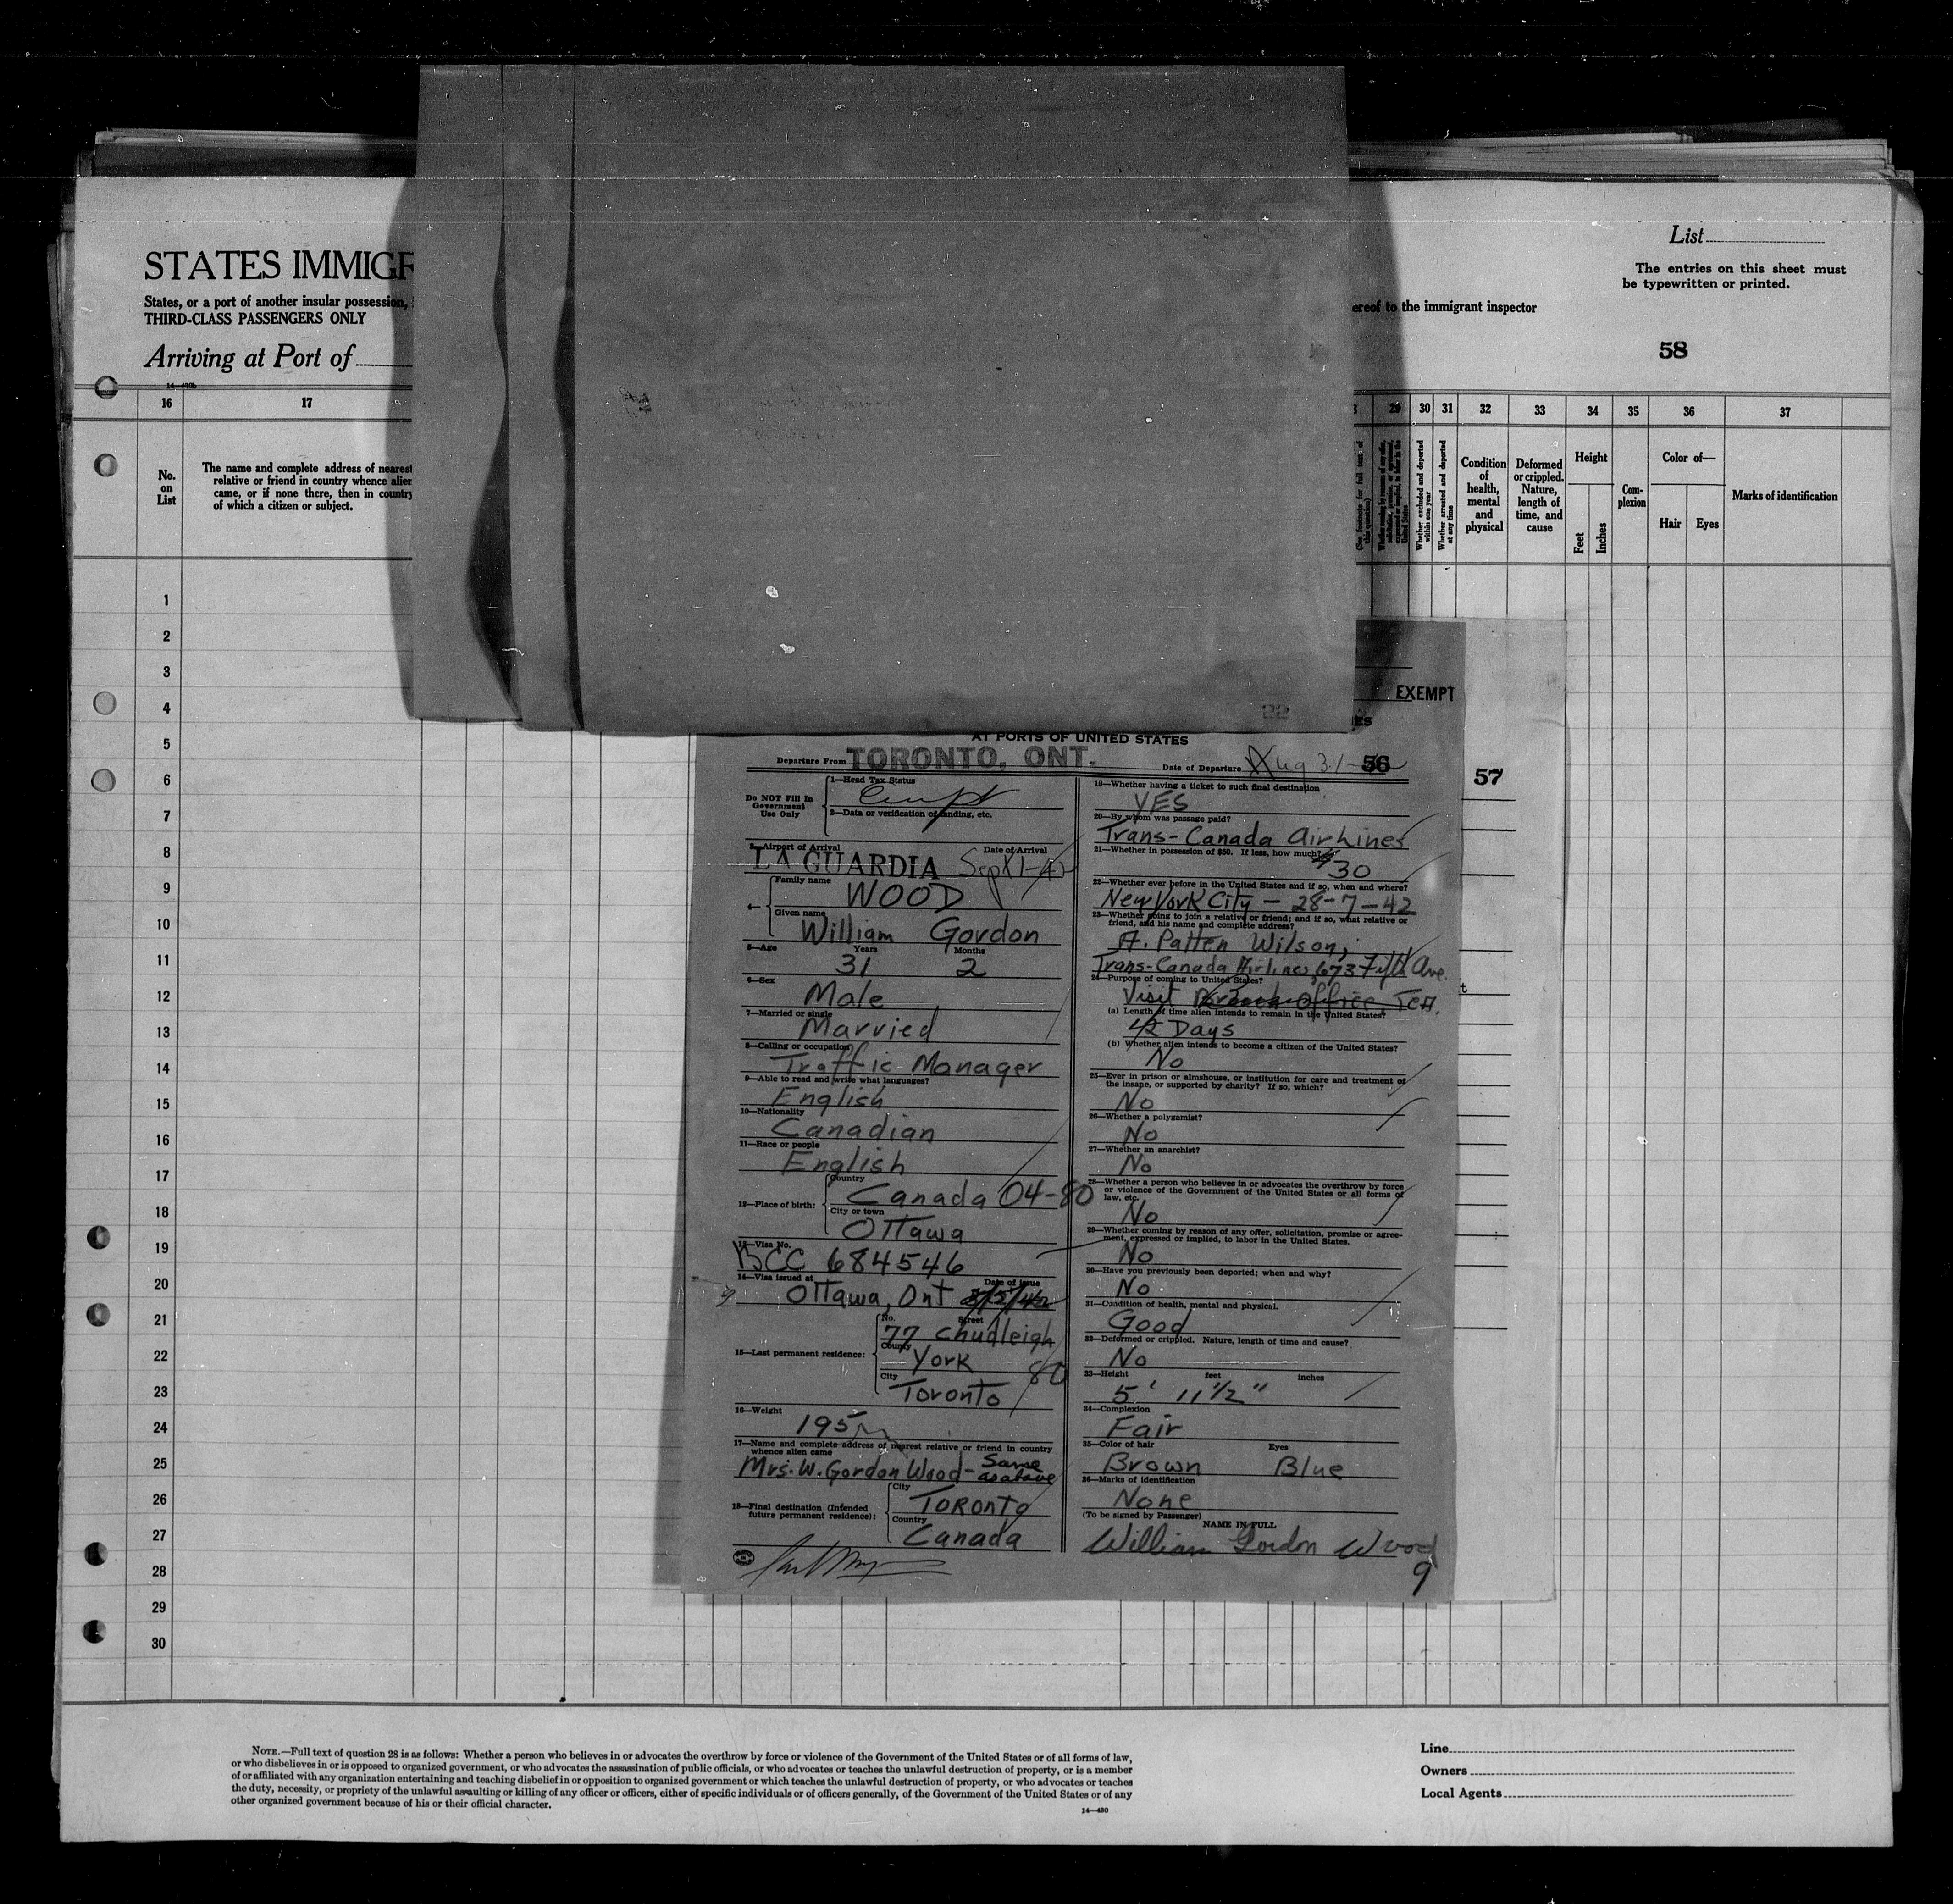 List
The entries on this sheet must
be typewritten or printed.
STATES IMMIGR
States, or a port of another insular possession,
THIRD-CLASS PASSENGERS ONLY
ereof to the immigrant inspector
Arriving at Port of
58
14—430b
16 17 29 30 31 32 33 34 35 36 37
No.
on
List
The name and complete address of nearest
relative or friend in country whence alien
came, or if none there, then in country
of which a citizen or subject.
Whether excluded and deported
within one year
Whether arrested and deported
at any time
Condition
of
health,
mental
and
physical
Deformed
or crippled.
Nature,
length of
time, and
cause
Height
Feet
Inches
Com-
plexion
Color of—
Hair Eyes
Marks of identification
1
2
3
4
5
6
7
8
9
10
11
12
13
14
15
16
17
18
19
20
21
22
23
24
25
26
27
28
29
30
EXEMPT
AT PORTS OF UNITED STATES
Departure From TORONTO, ONT.
Date of Departure Aug 31- 56
57
Do NOT Fill In
Government
Use Only
1—Head Tax Status
2—Data or verification of landing, etc.
3—Airport of Arrival Date of Arrival
LA GUARDIA Sept 1-42
4— Family name
WOOD
Given name
William Gordon
5—Age Years Months
31 2
6—Sex
Male
7—Married or single
Married
8—Calling or occupation
Traffic Manager
9—Able to read and write what languages?
English
10—Nationality
Canadian
11—Race or people
English
12—Place of birth: Country
Canada 04-80
City or town
Ottawa
13—Visa No.
BCC 684546
14—Visa issued at Date of issue
Ottawa, Ont
15—Last permanent residence: No. Street
77 Chudleigh
County
York 80
City
Toronto
16—Weight
195
17—Name and complete address of nearest relative or friend in country
whence alien came
Mrs. W. Gordon Wood - Same
as above
18—Final destination (Intended
future permanent residence):
City
Toronto
Country
Canada
19—Whether having a ticket to such final destination
YES
20—By whom was passage paid?
Trans-Canada AirLines
21—Whether in possession of $50. If less, how much?
$30
22—Whether ever before in the United States and if so, when and where?
New York City - 28-7-42
23—Whether going to join a relative or friend; and if so, what relative or
friend, and his name and complete address?
A. Patten Wilson,
Trans-Canada Airlines, 673 Fifth Ave.
24—Purpose of coming to United States?
Visit Branch Office TCA.
(a) Length of time alien intends to remain in the United States?
2 Days
(b) Whether alien intends to become a citizen of the United States?
No
25—Ever in prison or almshouse, or institution for care and treatment of
the insane, or supported by charity? If so, which?
No
26—Whether a polygamist?
No
27—Whether an anarchist?
No
28—Whether a person who believes in or advocates the overthrow by force
or violence of the Government of the United States or all forms of
law, etc.
No
29—Whether coming by reason of any offer, solicitation, promise or agree-
ment, expressed or implied, to labor in the United States.
No
30—Have you previously been deported; when and why?
No
31—Condition of health, mental and physical.
Good
32—Deformed or crippled. Nature, length of time and cause?
No
33—Height feet inches
5' 11½"
34—Complexion
Fair
35—Color of hair Eyes
Brown Blue
36—Marks of identification
None
(To be signed by Passenger)
NAME IN FULL
William Gordon Wood
9
NOTE.—Full text of question 28 is as follows: Whether a person who believes in or advocates the overthrow by force or violence of the Government of the United States or of all forms of law,
or who disbelieves in or is opposed to organized government, or who advocates the assassination of public officials, or who advocates or teaches the unlawful destruction of property, or is a member
of or affiliated with any organization entertaining and teaching disbelief in or opposition to organized government or which teaches the unlawful destruction of property, or who advocates or teaches
the duty, necessity, or propriety of the unlawful assaulting or killing of any officer or officers, either of specific individuals or of officers generally, of the Government of the United States or of any
other organized government because of his or their official character.
14—430
Line
Owners
Local Agents